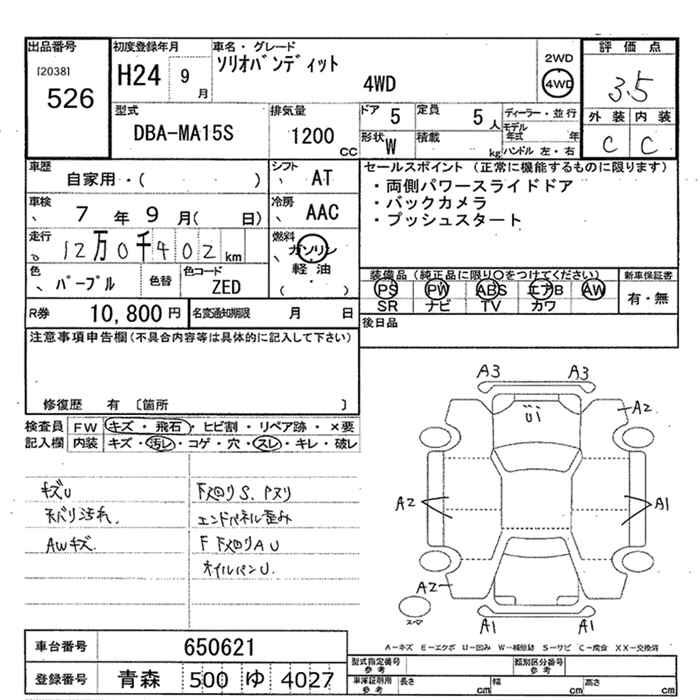 出品番号
[2038]
526
初度登録年月
H24 9
月
車名・グレード
ソリオバンディット
4WD
2WD
4WD
評価点
3.5
外装 内装
C C
型式
DBA-MA15S
排気量
1200
CC
ドア 5
定員 5
人
形状 W
積載
kg
ディーラー・並行
モデル年式 年
ハンドル 左・右
車歴
自家用・( )
シフト
、 AT
車検
、 7 年 9 月( 日)
冷房
、 AAC
走行
12万0千402 km
燃料
ガソリン
軽油
( )
色
、 パープル
色替
色コード
ZED
R券 10,800 円
名変通知期限 月 日
セールスポイント (正常に機能するものに限ります)
・両側パワースライドドア
・バックカメラ
・プッシュスタート
装備品(純正品に限り○をつけてください)
PS PW ABS エアB AW
SR ナビ TV カワ
新車保証書
有・無
後日品
注意事項申告欄(不具合内容等は具体的に記入して下さい)
修復歴 有 〔箇所 〕
検査員
記入欄
FW キズ・飛石・ヒビ割・リペア跡・×要
内装 キズ・汚レ・コゲ・穴・スレ・キレ・破レ
キズU
天バリ汚れ.
AWキズ.
F メ回リ S. Pヌリ
エンドパネル歪み
F 下メ回リ A U
オイルパンU.
A3 A3
Ui
A2
A2
A1
A2
A1 A1
スペア
A-キズ E-エクボ U-凹み W-補修跡 S-サビ C-腐食 XX-交換済
車台番号 650621
登録番号 青森 500 ゆ 4027
型式指定番号
参考
類別区分番号
参考
車庫証明用
参考
長さ cm
幅 cm
高さ cm